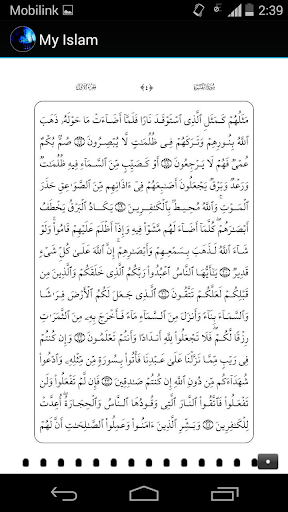 Mobilink 2:39
My Islam
سُورَةُ البَقَرَةِ ﴿٤﴾ الجُزءُ الأَوَّلُ
مَثَلُهُمْ كَمَثَلِ ٱلَّذِى ٱسْتَوْقَدَ نَارًا فَلَمَّآ أَضَآءَتْ مَا حَوْلَهُۥ ذَهَبَ
ٱللَّهُ بِنُورِهِمْ وَتَرَكَهُمْ فِى ظُلُمَٰتٍ لَّا يُبْصِرُونَ ۝١٧ صُمٌّۢ بُكْمٌ
عُمْىٌ فَهُمْ لَا يَرْجِعُونَ ۝١٨ أَوْ كَصَيِّبٍ مِّنَ ٱلسَّمَآءِ فِيهِ ظُلُمَٰتٌ
وَرَعْدٌ وَبَرْقٌ يَجْعَلُونَ أَصَٰبِعَهُمْ فِىٓ ءَاذَانِهِم مِّنَ ٱلصَّوَٰعِقِ حَذَرَ
ٱلْمَوْتِ ۚ وَٱللَّهُ مُحِيطٌۢ بِٱلْكَٰفِرِينَ ۝١٩ يَكَادُ ٱلْبَرْقُ يَخْطَفُ
أَبْصَٰرَهُمْ ۖ كُلَّمَآ أَضَآءَ لَهُم مَّشَوْا۟ فِيهِ وَإِذَآ أَظْلَمَ عَلَيْهِمْ قَامُوا۟ ۚ وَلَوْ
شَآءَ ٱللَّهُ لَذَهَبَ بِسَمْعِهِمْ وَأَبْصَٰرِهِمْ ۚ إِنَّ ٱللَّهَ عَلَىٰ كُلِّ شَىْءٍ
قَدِيرٌ ۝٢٠ يَٰٓأَيُّهَا ٱلنَّاسُ ٱعْبُدُوا۟ رَبَّكُمُ ٱلَّذِى خَلَقَكُمْ وَٱلَّذِينَ مِن
قَبْلِكُمْ لَعَلَّكُمْ تَتَّقُونَ ۝٢١ ٱلَّذِى جَعَلَ لَكُمُ ٱلْأَرْضَ فِرَٰشًا
وَٱلسَّمَآءَ بِنَآءً وَأَنزَلَ مِنَ ٱلسَّمَآءِ مَآءً فَأَخْرَجَ بِهِۦ مِنَ ٱلثَّمَرَٰتِ
رِزْقًا لَّكُمْ ۖ فَلَا تَجْعَلُوا۟ لِلَّهِ أَندَادًا وَأَنتُمْ تَعْلَمُونَ ۝٢٢ وَإِن كُنتُمْ
فِى رَيْبٍ مِّمَّا نَزَّلْنَا عَلَىٰ عَبْدِنَا فَأْتُوا۟ بِسُورَةٍ مِّن مِّثْلِهِۦ وَٱدْعُوا۟
شُهَدَآءَكُم مِّن دُونِ ٱللَّهِ إِن كُنتُمْ صَٰدِقِينَ ۝٢٣ فَإِن لَّمْ تَفْعَلُوا۟ وَلَن
تَفْعَلُوا۟ فَٱتَّقُوا۟ ٱلنَّارَ ٱلَّتِى وَقُودُهَا ٱلنَّاسُ وَٱلْحِجَارَةُ ۖ أُعِدَّتْ
لِلْكَٰفِرِينَ ۝٢٤ وَبَشِّرِ ٱلَّذِينَ ءَامَنُوا۟ وَعَمِلُوا۟ ٱلصَّٰلِحَٰتِ أَنَّ لَهُمْ